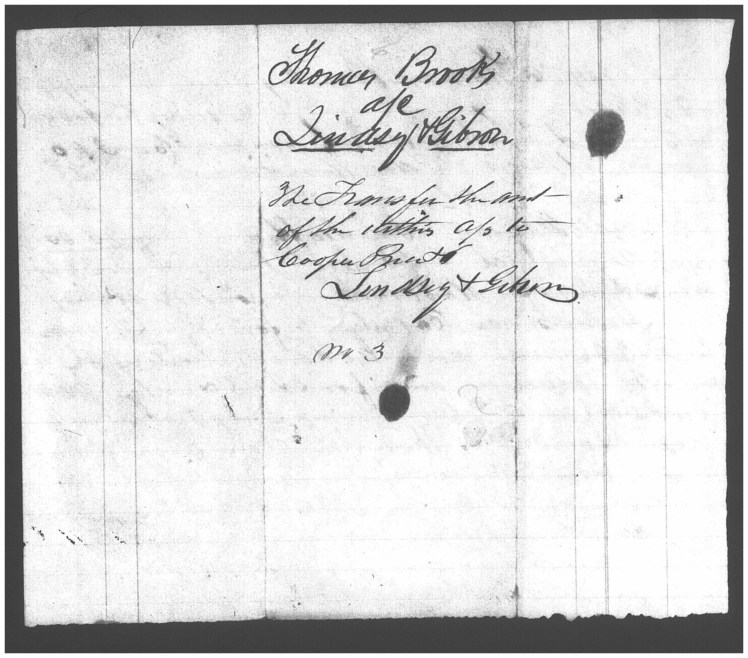 Thomas Brooks
a/c
Lindsey & Gibson
We Transfer the amt
of the within a/c to
Cooper
Lindsey & Gibson
No 3